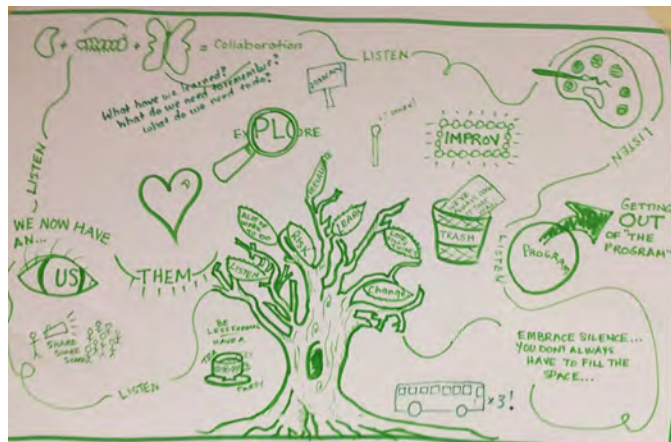 + + = Collaboration
LISTEN
What have we learned?
What do we need to remember?
What do we need to do?
EXPLORE
IMPROV
LISTEN
LISTEN
WE NOW HAVE
AN...
US
THEM
TRASH
LISTEN
PROGRAM
GETTING
OUT
OF "THE
PROGRAM"
RISK
LEARN
LISTEN
Change
SHARE
SHARE
SHARE
LISTEN
BE
LESS FORMAL
HAVE A
PARTY
x3!
EMBRACE SILENCE...
YOU DON'T ALWAYS
HAVE TO FILL THE
SPACE...